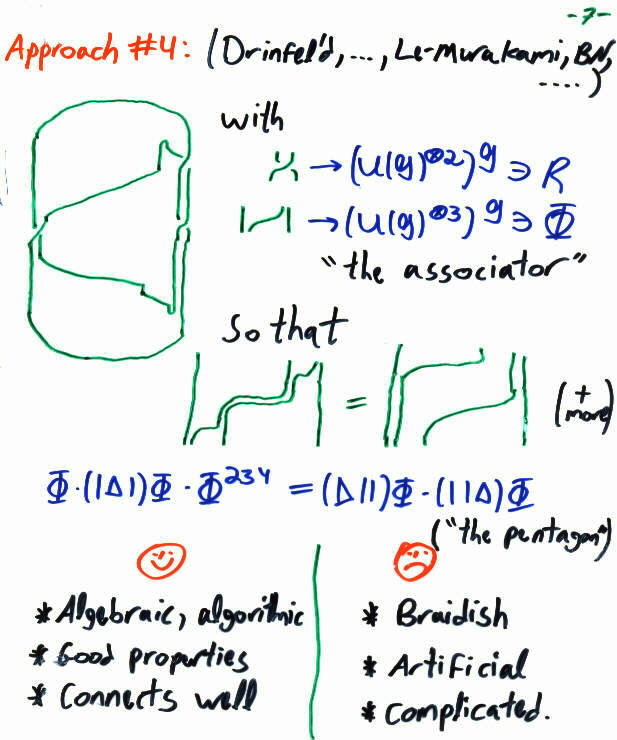 -7-
Approach #4: (Drinfel'd, ..., Le-Murakami, BN,
....)
with
→ (U(g)^⊗2)^g ∋ R
→ (U(g)^⊗3)^g ∋ Φ
"the associator"
so that
= (+ more)
Φ·(1Δ1)Φ·Φ^234 = (Δ11)Φ·(11Δ)Φ
("the pentagon")
* Algebraic, algorithmic
* Good properties
* Connects well
* Braidish
* Artificial
* Complicated.